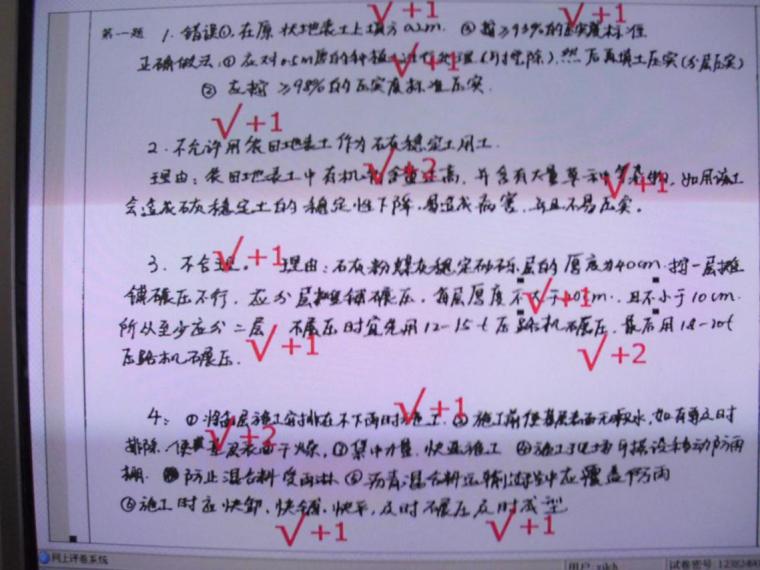 第一题 1. 错误①. 在原状地表土上填方0.2m. ②按≥93%的压实度标准
正确做法: ① 应对0.5m厚的种植土进行处理(清除), 然后再填土压实(分层压实)
② 应按≥93%的压实度标准压实.
2. 不允许用农田地表土作为石灰稳定土用土.
理由: 农田地表土中有机含量过高, 并含有大量草 如用该土
会造成石灰稳定土的稳定性下降, 易造成病害, 并且不易压实.
3. 不合理. 理由: 石灰粉煤灰稳定砂砾层的厚度为40cm. 按一层摊
铺碾压不行, 应分层摊铺碾压, 每层厚度不大于20cm, 且不小于10cm.
所以至少应分二层 碾压时宜先用12-15t压路机碾压, 最后用18-20t
压路机碾压.
4: ① 将面层施工安排在不下雨时施工 ② 施工前使基层表面无积水, 如有要及时
排除, 使基层表面干燥, ③ 集中力量, 快速施工 ④ 施工现场可搭设移动防雨
棚. 防止混合料受雨淋 ⑤ 沥青混合料运输过程中应覆盖防雨
⑥ 施工时应快卸、快铺、快平, 及时碾压及时成型
√+1
√+1
√+1
√+1
√+2
√+1
√+1
√+1
√+1
√+2
√+1
√+2
√+1
√+1
网上评卷系统
用户: 试卷密号: